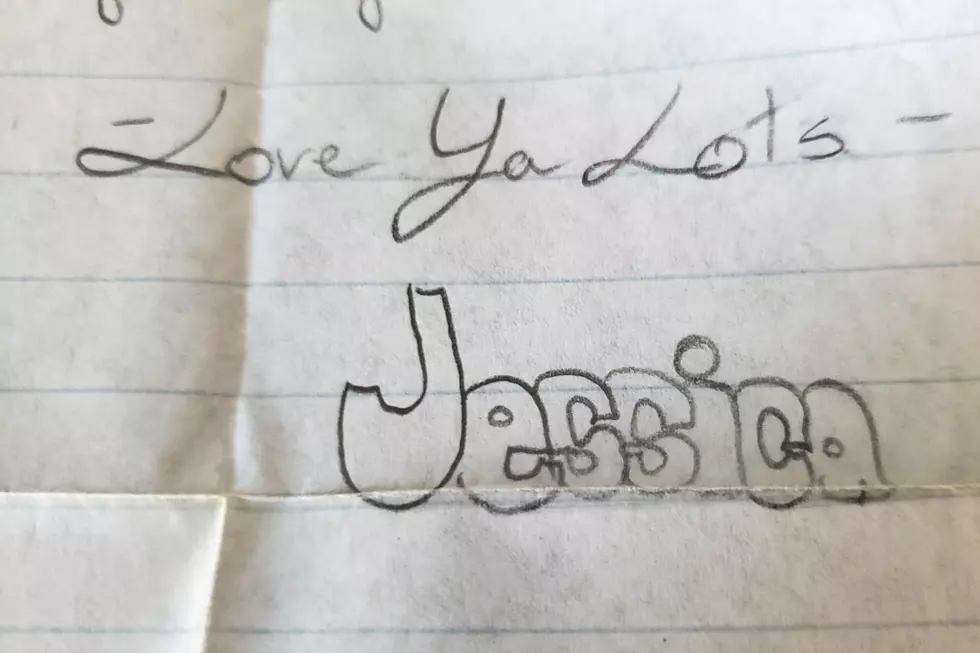 - Love Ya Lots -
Jessica